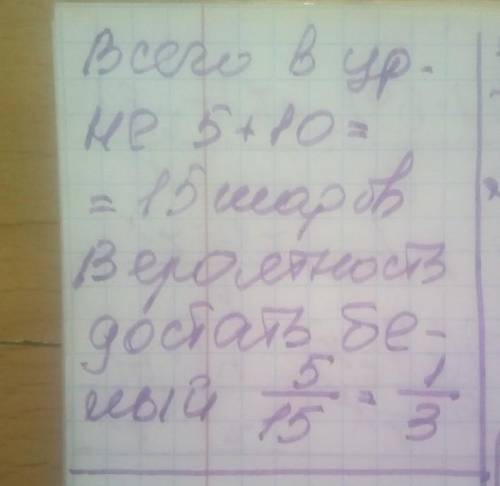 Всего в ур-
не 5+10=
=15 шаров
Вероятность
достать бе-
лый 5/15 = 1/3